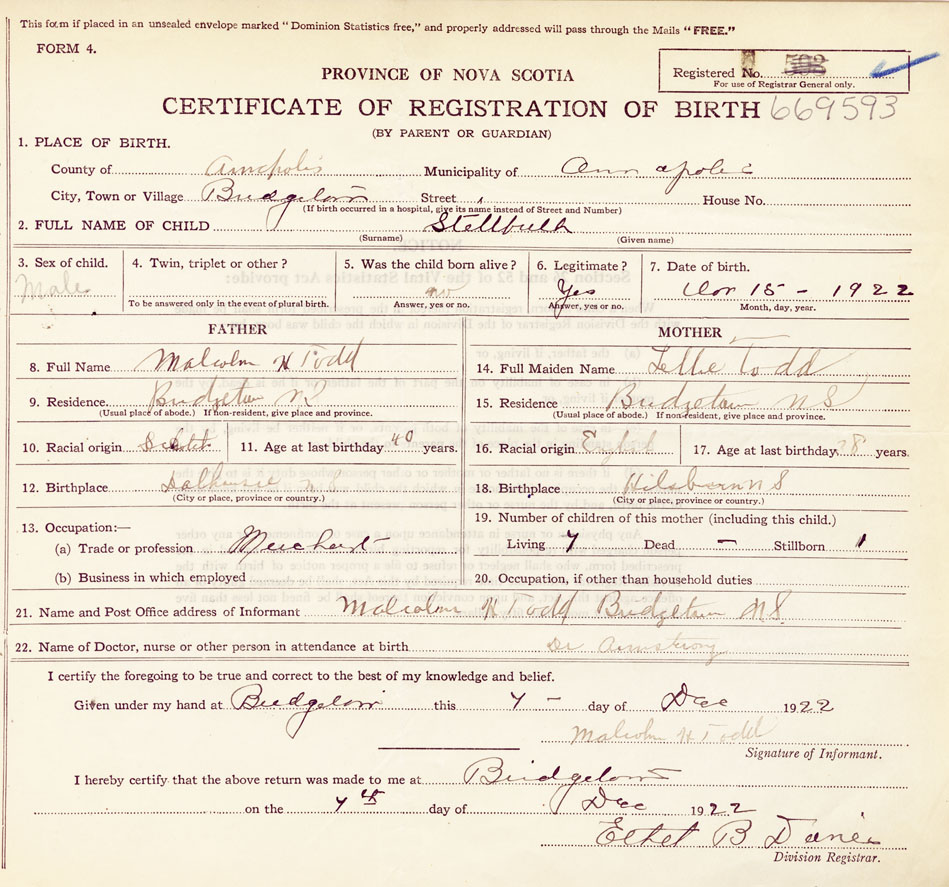 This form if placed in an unsealed envelope marked "Dominion Statistics free," and properly addressed will pass through the Mails "FREE."
FORM 4.
Registered No. 502
For use of Registrar General only.
PROVINCE OF NOVA SCOTIA
CERTIFICATE OF REGISTRATION OF BIRTH 669593
(BY PARENT OR GUARDIAN)
1. PLACE OF BIRTH.
County of Annapolis Municipality of Annapolis
City, Town or Village Bridgetown Street House No.
(If birth occurred in a hospital, give its name instead of Street and Number)
2. FULL NAME OF CHILD Stillbirth
(Surname) (Given name)
3. Sex of child. 4. Twin, triplet or other? 5. Was the child born alive? 6. Legitimate? 7. Date of birth.
Male no Yes Nov 15 - 1922
To be answered only in the event of plural birth. Answer, yes or no. Answer, yes or no. Month, day, year.
FATHER MOTHER
8. Full Name Malcolm H Todd 14. Full Maiden Name Todd
9. Residence Bridgetown N S 15. Residence Bridgetown N S
(Usual place of abode.) If non-resident, give place and province. (Usual place of abode.) If non-resident, give place and province.
10. Racial origin Scotch 11. Age at last birthday 40 years. 16. Racial origin English 17. Age at last birthday 38 years.
12. Birthplace Dalhousie N S 18. Birthplace N S
(City or place, province or country.) (City or place, province or country.)
13. Occupation:— 19. Number of children of this mother (including this child.)
(a) Trade or profession Merchant Living 7 Dead — Stillborn 1
(b) Business in which employed 20. Occupation, if other than household duties
21. Name and Post Office address of Informant Malcolm H Todd Bridgetown N S
22. Name of Doctor, nurse or other person in attendance at birth Dr Armstrong
I certify the foregoing to be true and correct to the best of my knowledge and belief.
Given under my hand at Bridgetown this 7 - day of Dec 1922
Malcolm H Todd
Signature of Informant.
I hereby certify that the above return was made to me at Bridgetown
on the 7th day of Dec 1922
Ethel B
Division Registrar.